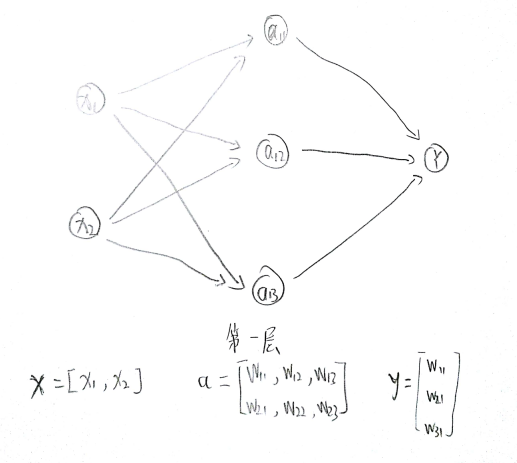 a11
x1
a12
Y
x2
a13
第一层
X = [x1, x2]
a = [w11, w12, w13
w21, w22, w23]
Y = [w11
w21
w31]